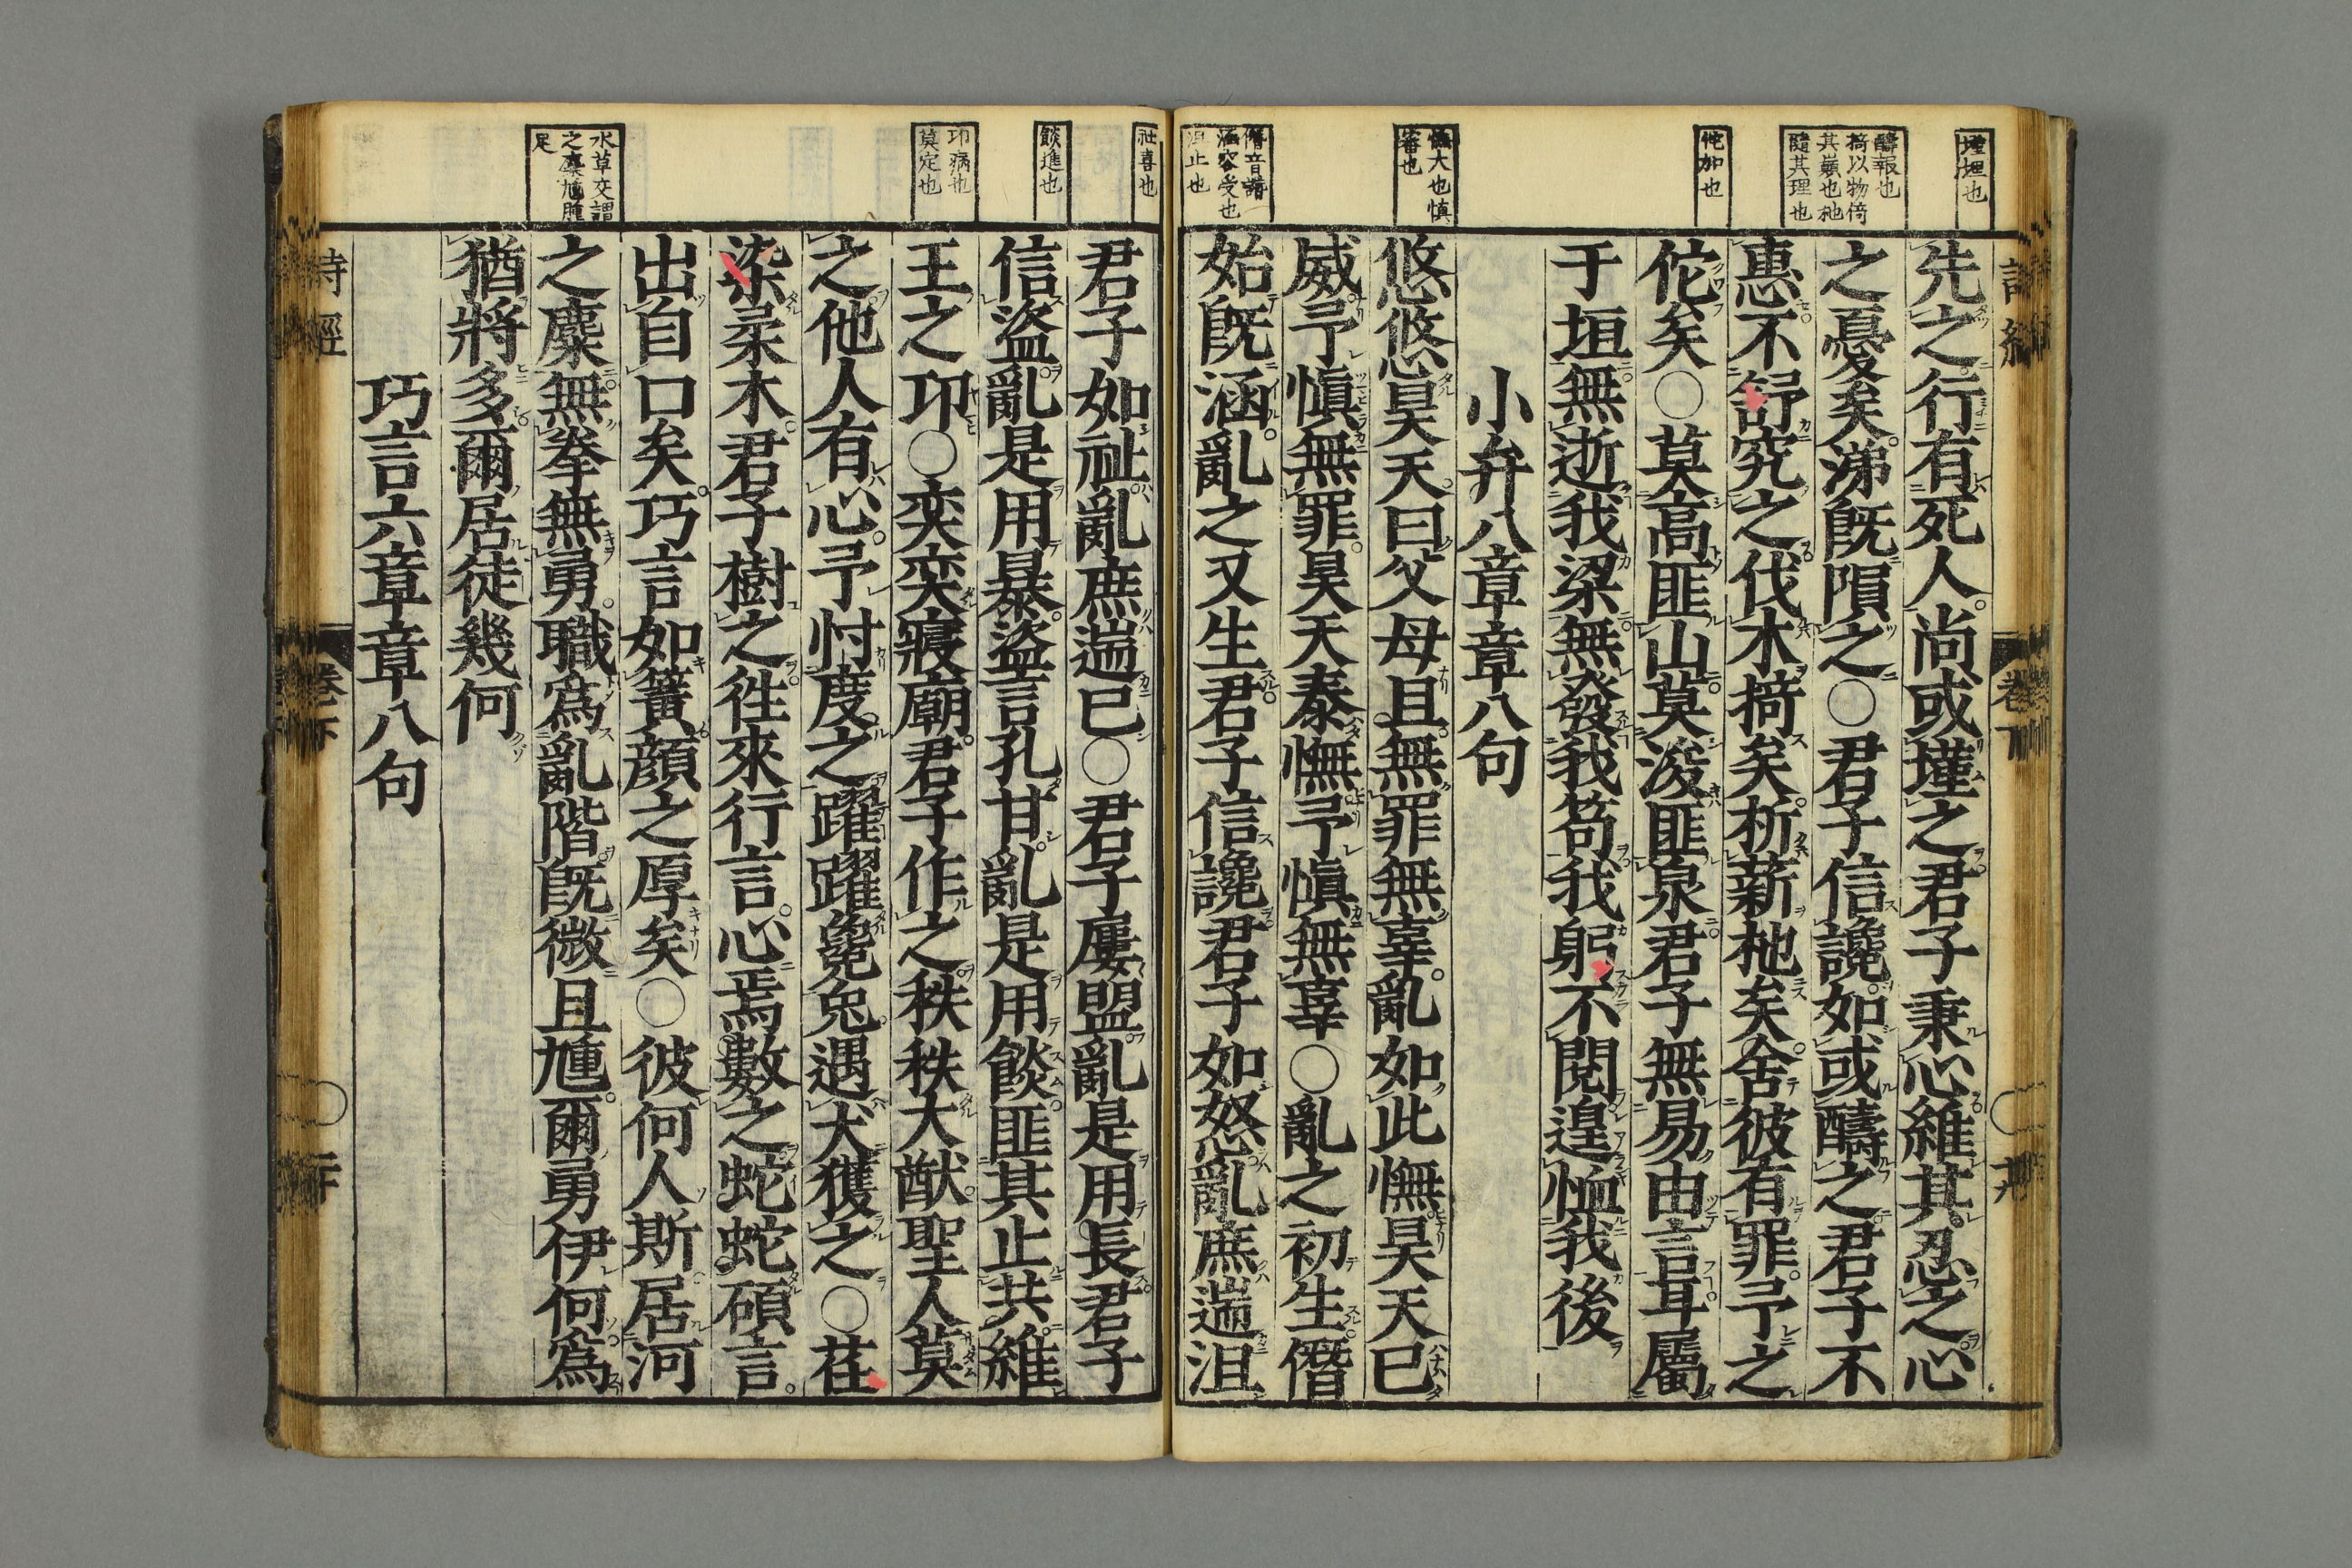 墐埋也
醻報也
掎以物倚
其巓也杝
隨其理也
佗加也
憮大也慎
審也
僭音譖
涵容受也
沮止也
先之行有死人尚或墐之君子秉心維其忍之心
之憂矣涕既隕之○君子信讒如或醻之君子不
惠不舒究之伐木掎矣析薪杝矣舍彼有罪予之
佗矣○莫高匪山莫浚匪泉君子無易由言耳屬
于垣無逝我梁無發我笱我躬不閱遑恤我後
小弁八章章八句
悠悠昊天曰父母且無罪無辜亂如此憮昊天已
威予慎無罪昊天泰憮予慎無辜○亂之初生僭
始既涵亂之又生君子信讒君子如怒亂庶遄沮
祉喜也
餤進也
卭病也
莫定也
水草交謂
之麋尰腫
足
君子如祉亂庶遄已○君子屢盟亂是用長君子
信盜亂是用暴盜言孔甘亂是用餤匪其止共維
王之卭○奕奕寢廟君子作之秩秩大猷聖人莫
之他人有心予忖度之躍躍毚兔遇犬獲之○荏
染柔木君子樹之徃來行言心焉數之蛇蛇碩言
出自口矣巧言如簧顏之厚矣○彼何人斯居河
之麋無拳無勇職為亂階既微且尰爾勇伊何為
猶將多爾居徒幾何
巧言六章章八句
詩經